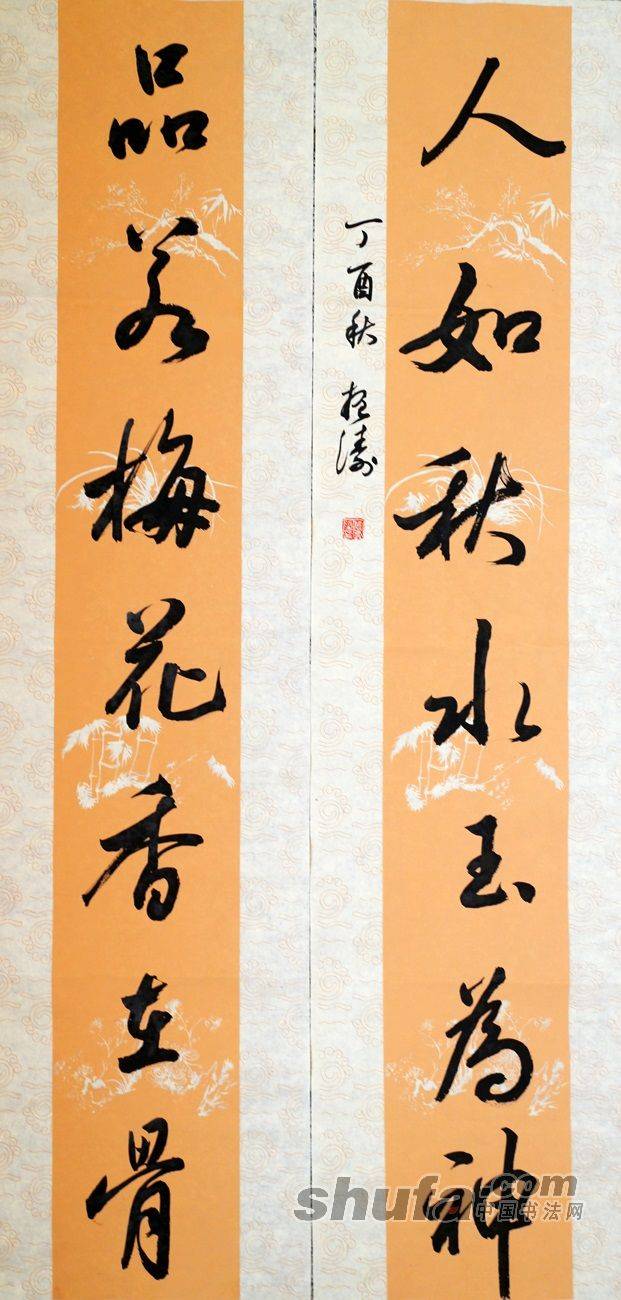 人如秋水玉為神
品若梅花香在骨
丁酉秋
shufa.com
中国书法网